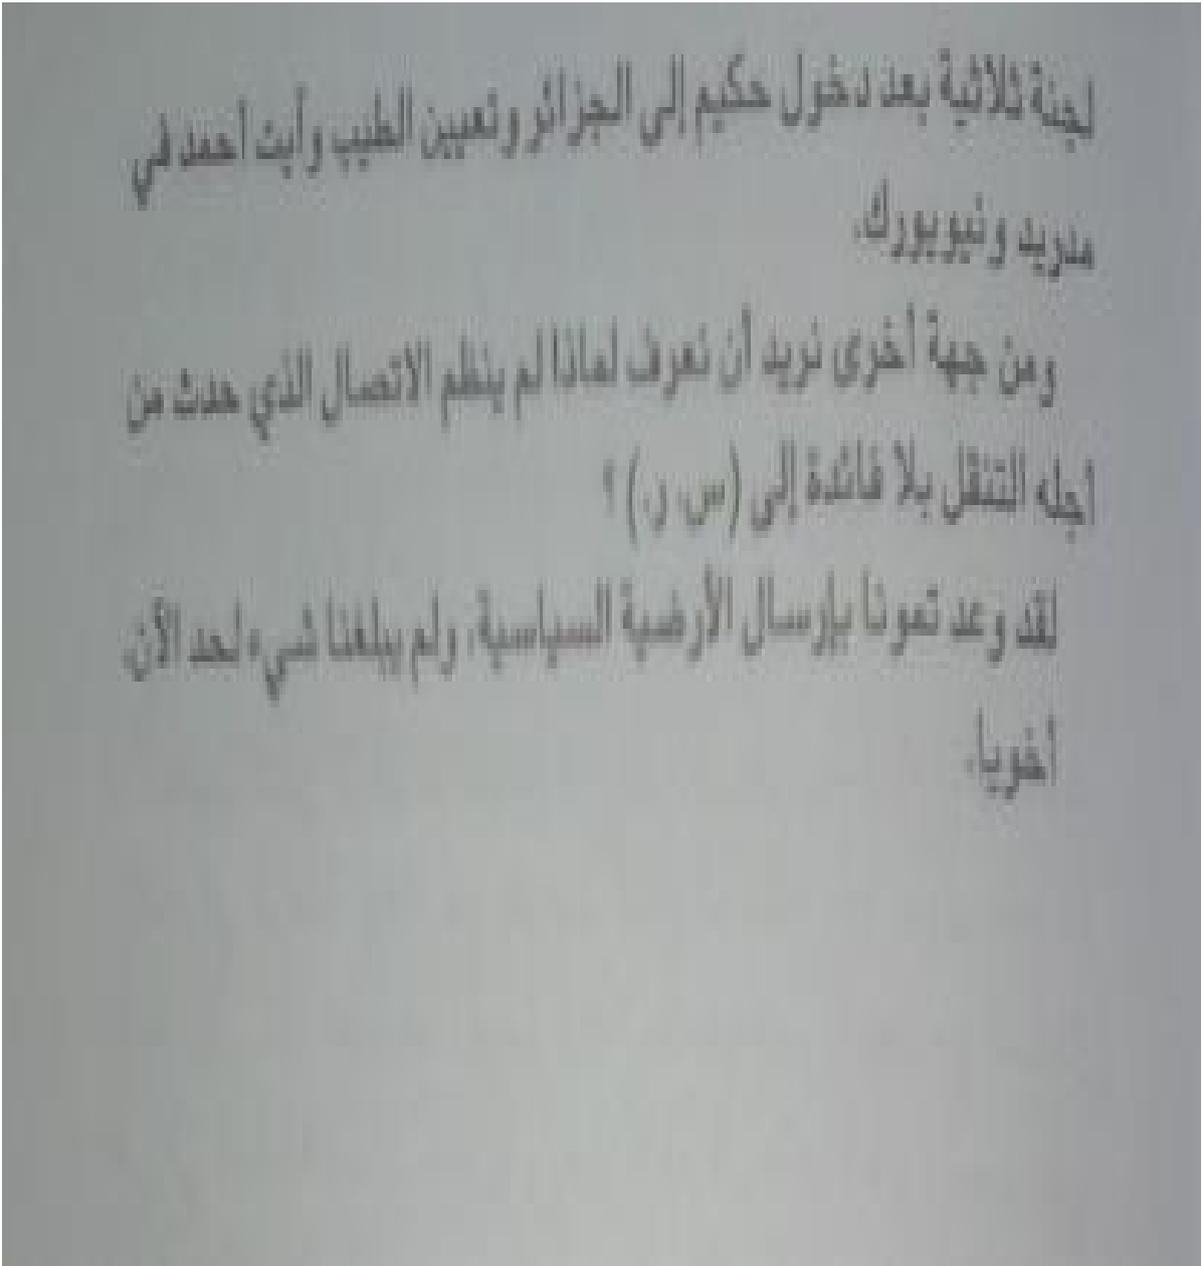 لجنة ثلاثية بعد دخول حكيم إلى الجزائر وتعيين الطيب وأيت أحمد في
مدريد ونيويورك.
ومن جهة أخرى نريد أن نعرف لماذا لم ينظم الاتصال الذي حدث من
أجله التنقل بلا فائدة إلى (س. ر.) ؟
لقد وعد تمونا بإرسال الأرضية السياسية، ولم يبلغنا شيء لحد الآن.
أخويا.